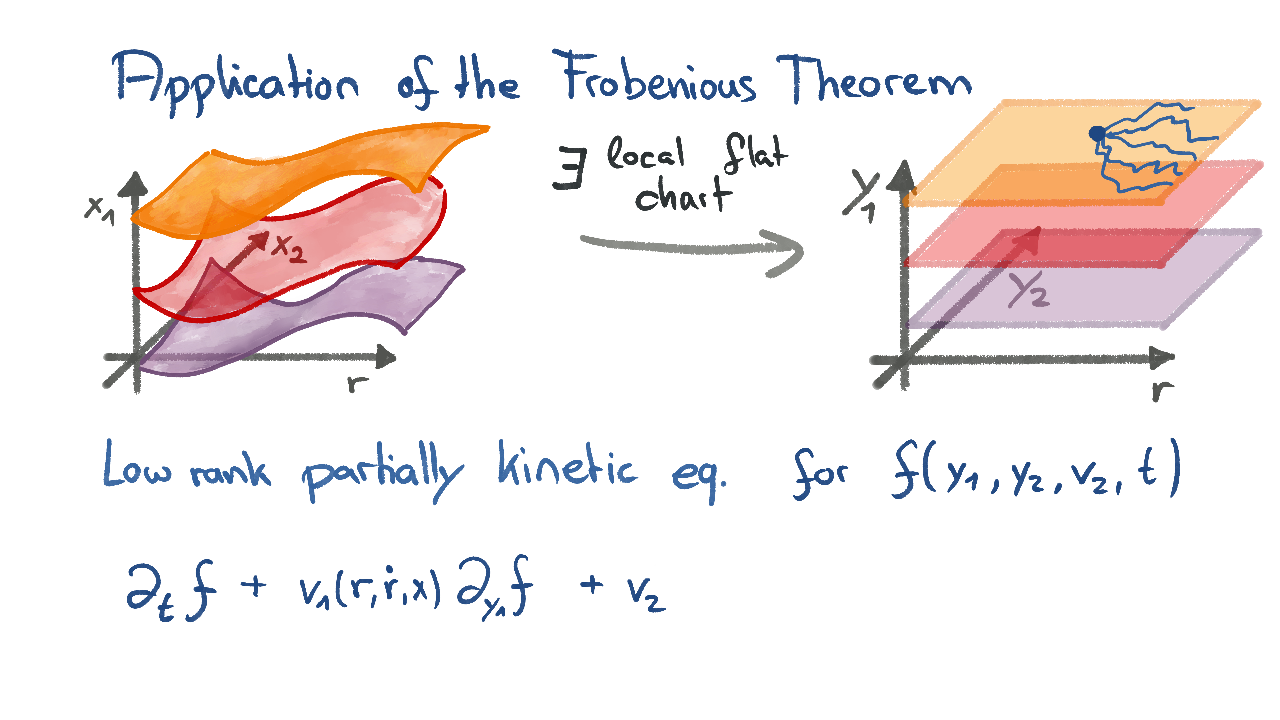 Application of the Frobenious Theorem
∃ local flat
chart
x₁
x₂
r
y₁
y₂
r
Low rank partially kinetic eq. for f(y₁, y₂, v₂, t)
∂ₜf + v₁(r, ṙ, x) ∂_y₁ f + v₂